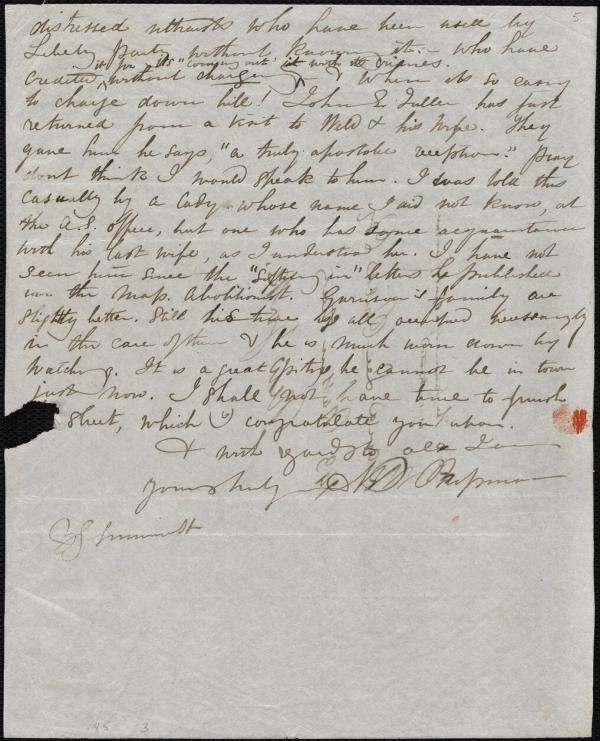 5
distressed who have been used by
Liberty Party without knowing it:— who have
it for its "coming out" it with its
credited without charging & When its so easy
to charge down hill! John E. Fuller has just
returned from a visit to Weld & his wife. They
gave him he says, "a truly apostolic reception." Pray
dont think I would speak to him. I was told this
casually by a lady whose name I did not know, at
the A.S. office, but one who has some acquaintance
with his last wife, as I understood her. I have not
seen him since the in" letters he published
in the Mass. Abolitionist. Garrison's family are
slightly better. Still his time is all occupied necessarily
in the care of them & he is much worn down by
watching. It is a great pity he cannot be in town
just now. I shall not have time to finish
sheet, which I congratulate you upon.
& with regards to all I am
yours truly Chapman
45 3